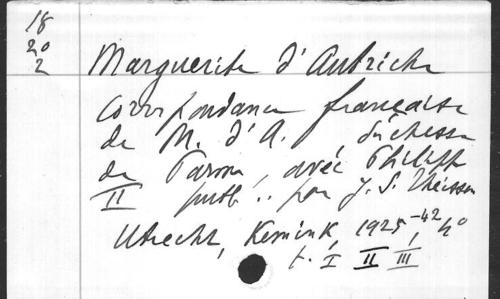 18
20
2
Marguerite d'Autriche
Correspondance française
de M. d'A. duchesse
de Parme, avec Philippe
II publ.. par J. S. Theissen
Utrecht, Kemink, 1925-42, 4°
t. I II III